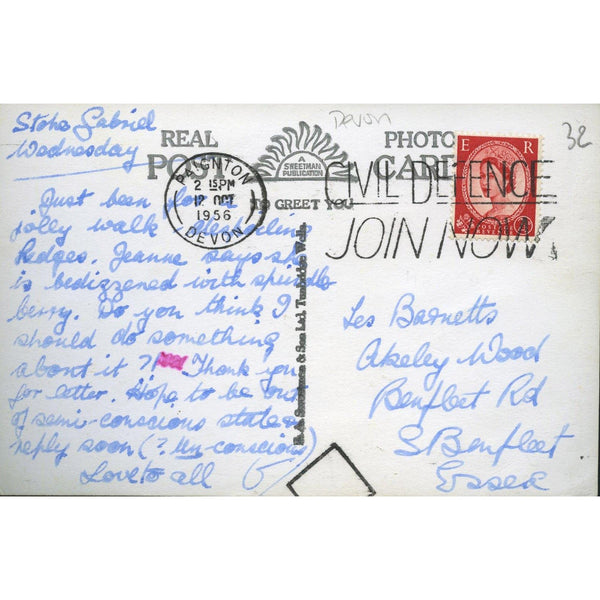 Stoke Gabriel
Wednesday
Just been for a
jolly walk
hedges. Jeanne says she
is bedizzened with spindle
berry. Do you think I
should do something
about it ? Thank you
for letter. Hope to be out
of semi-conscious state &
reply soon (? Un-conscious)
Love to all
REAL PHOTO
POST CARD
A
SWEETMAN
PUBLICATION
TO GREET YOU
Devon
32
PAIGNTON
2 15PM
12 OCT
1956
DEVON
CIVIL DEFENCE
JOIN NOW
E R
& Son Ltd. Tunbridge Wells.
Les Barnetts
Akeley Wood
Benfleet Rd
S Benfleet
Essex